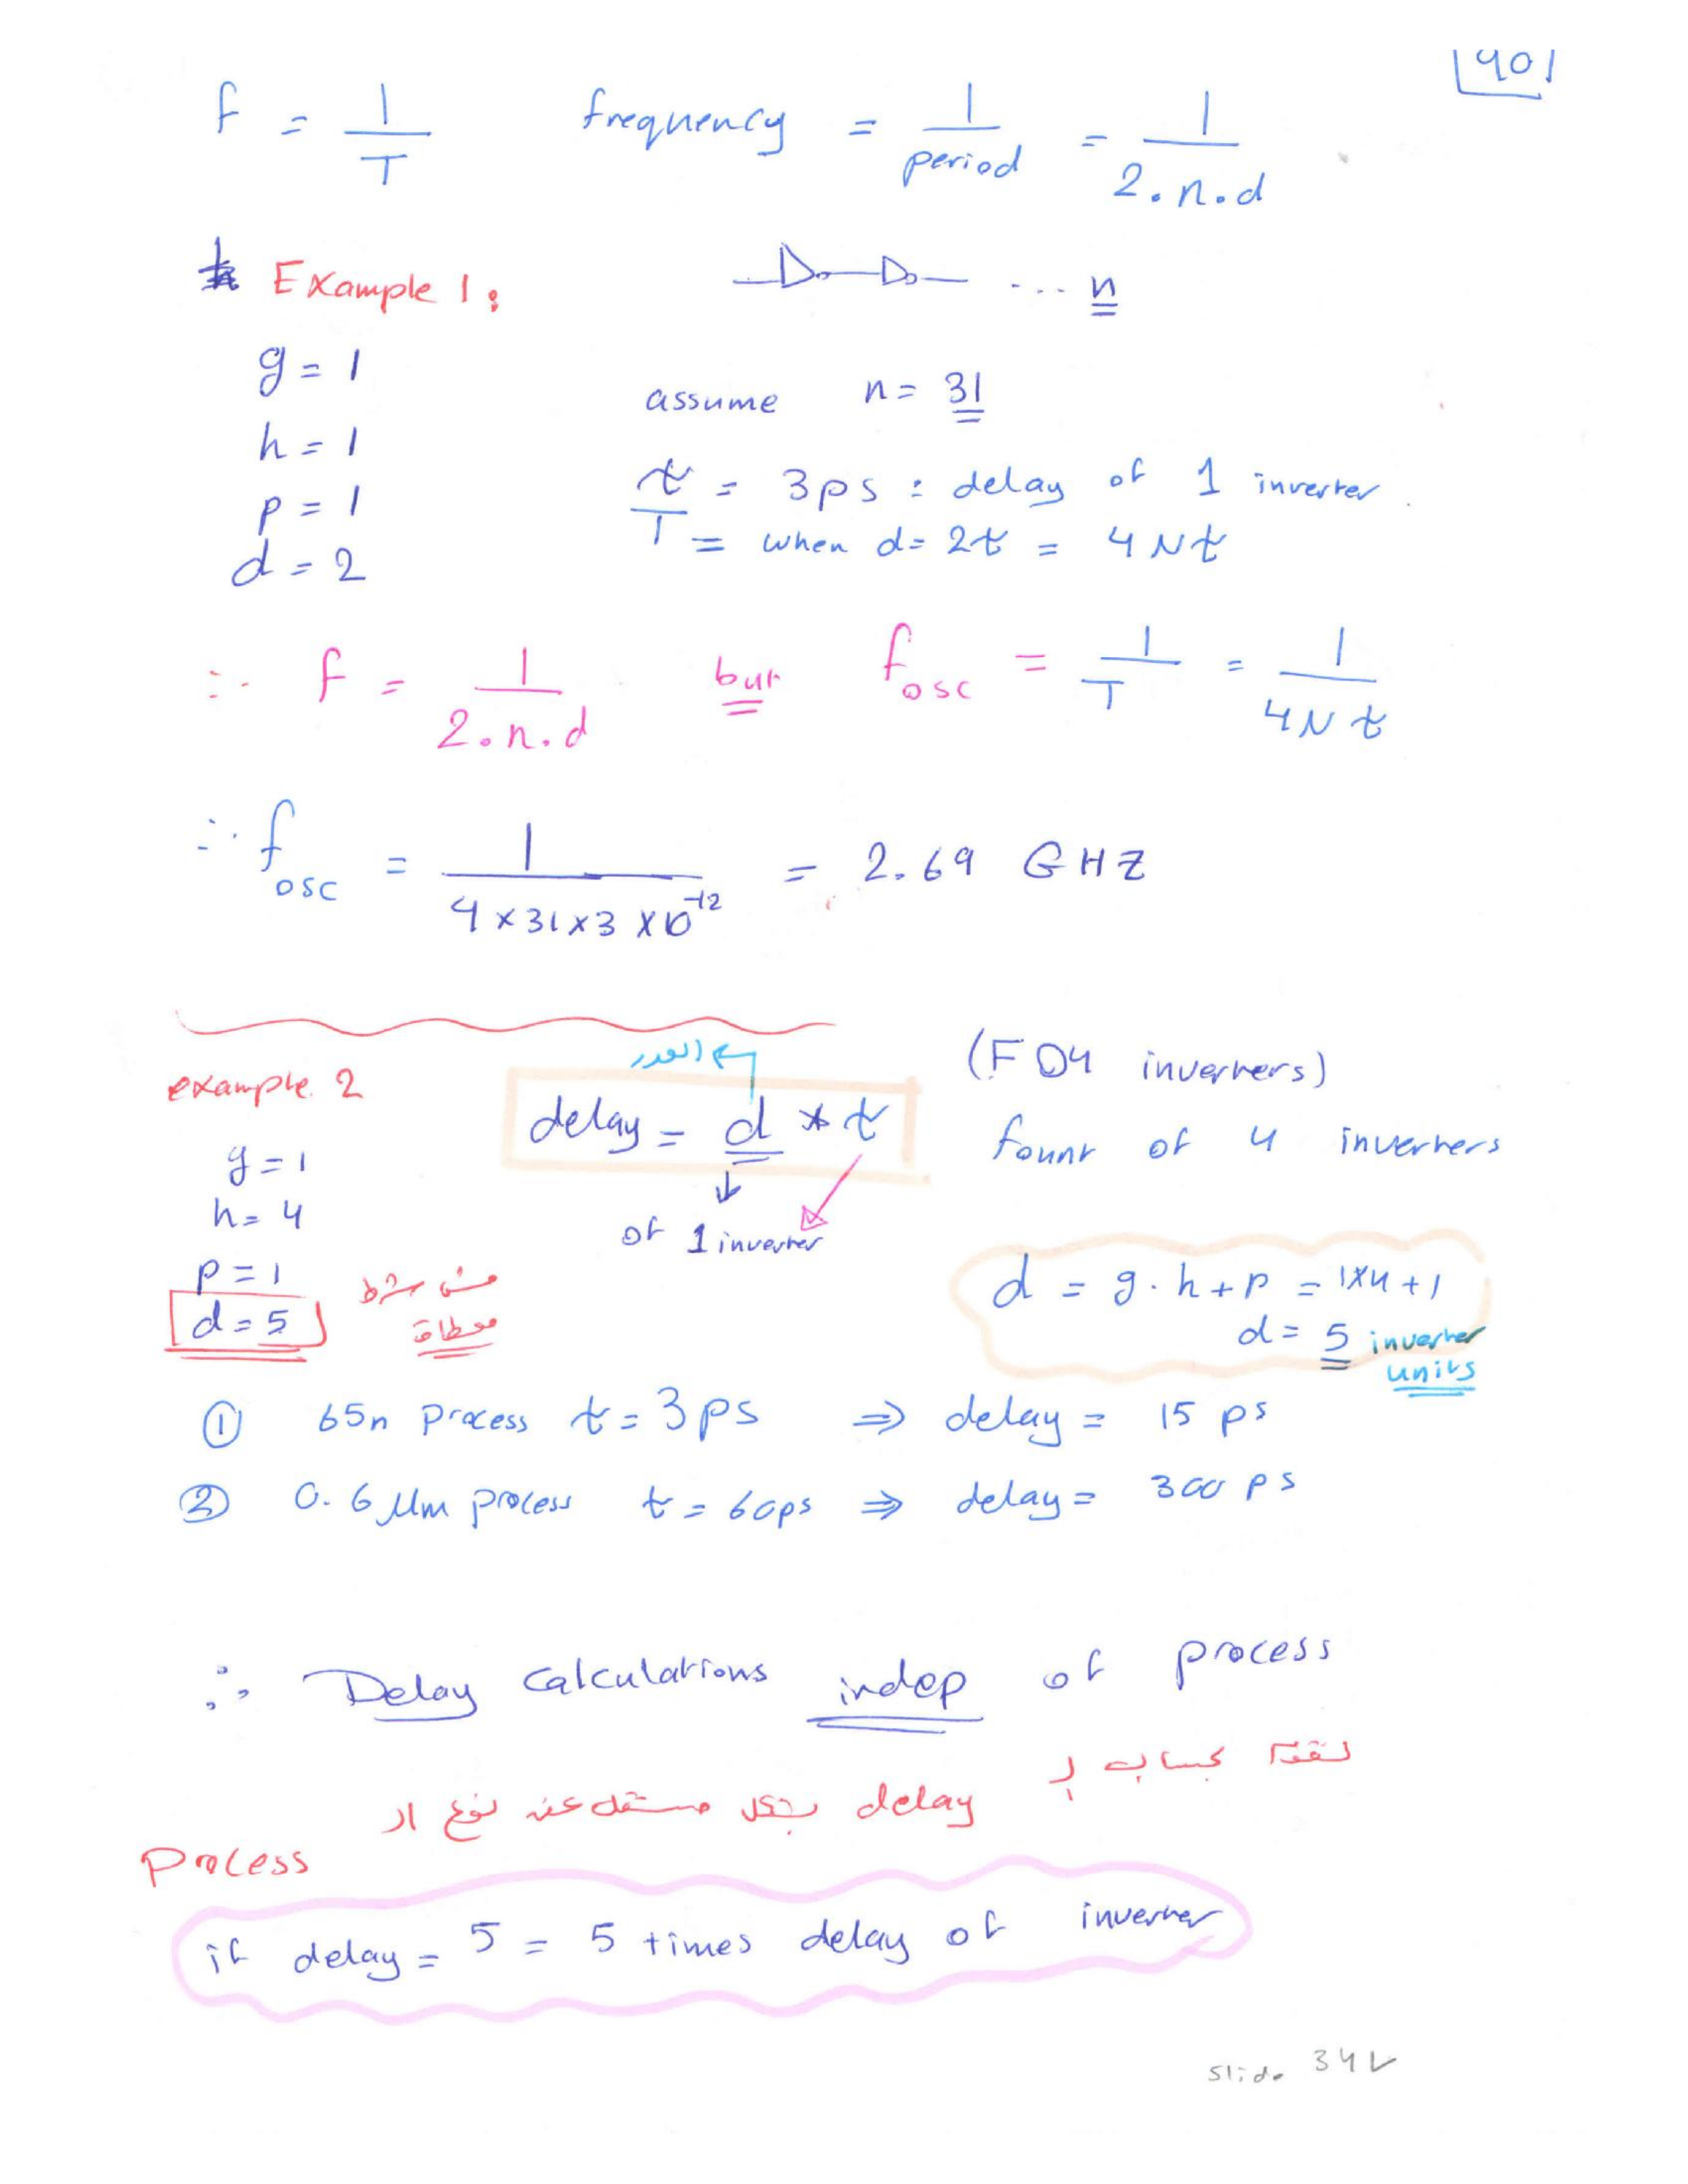 40
f = 1/T frequency = 1/period = 1/2.n.d
Example 1:
... n
g = 1
assume n = 31
h = 1
p = 1
τ = 3ps : delay of 1 inverter
d = 2
T = when d = 2τ = 4Nτ
∴ f = 1/2.n.d but f osc = 1/T = 1/4Nτ
∴ f osc = 1/4×31×3×10^-12 = 2.69 GHZ
example 2
العدد
(FO4 inverters)
delay = d * τ
fount of 4 inverters
g = 1
h = 4
of 1 inverter
p = 1
مش شرط
d = g . h + p = 1×4 + 1
d = 5
معطاة
d = 5 inverter
units
① 65n process τ = 3ps ⇒ delay = 15 ps
② 0.6 μm process τ = 60ps ⇒ delay = 300 ps
∴ Delay Calculations indep of process
بحساب
delay بشكل مستقل عن نوع ال
Process
if delay = 5 = 5 times delay of inverter
slide 34